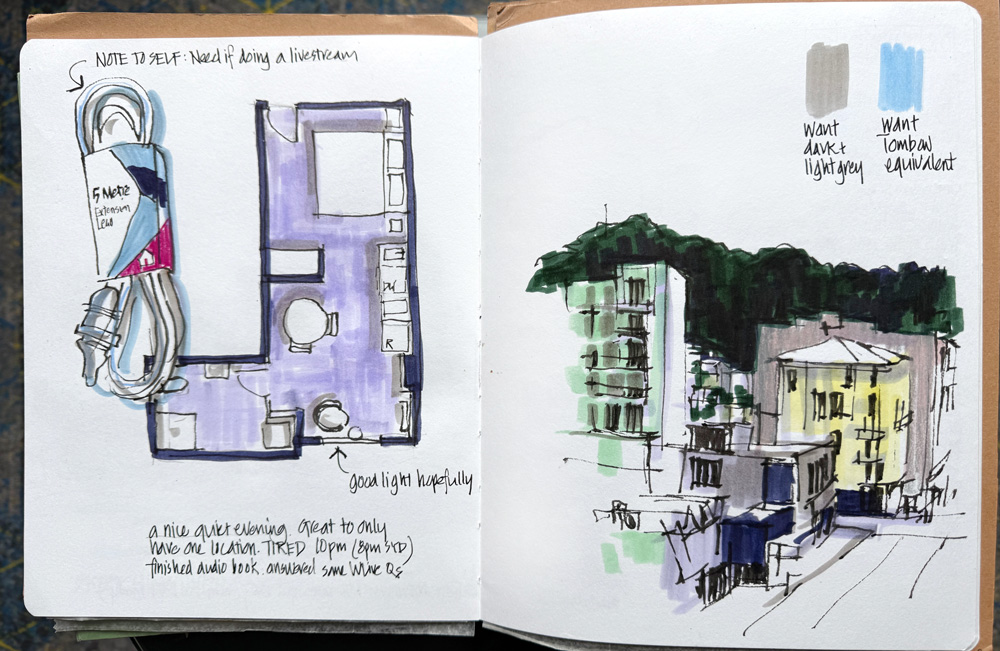 NOTE TO SELF: Need if doing a livestream
5 Metre
Extension
Lead
DW
R
good light hopefully
a nice quiet evening. Great to only
have one location. TIRED 10pm (8pm SYD)
finished audio book. answered some Qs
Want
dark +
light grey
Want
Tombow
equivalent